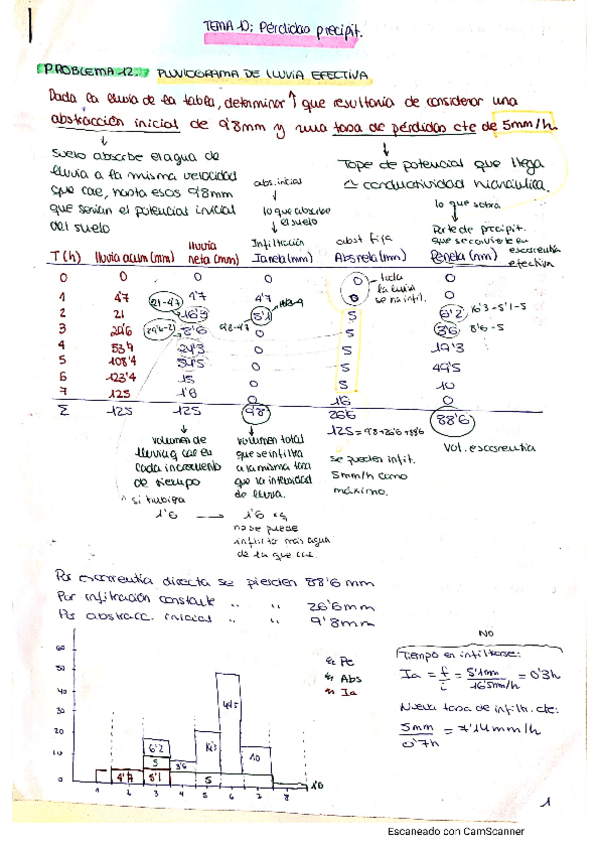 TEMA 10: Pérdidas precipit.
PROBLEMA 12. PLUVIOGRAMA DE LLUVIA EFECTIVA
Dada la lluvia de la tabla, determinar ↑ que resultaría de considerar una
abstracción inicial de 9'8mm y una tasa de pérdidas cte de 5mm/h.
Suelo absorbe el agua de
lluvia a la misma velocidad
que cae, hasta esos 9'8mm
que serían el potencial inicial
del suelo
abs. inicial
lo que absorbe
el suelo
Tope de potencial que llega
a conductividad hidráulica.
lo que sobra
Parte de precipit.
que se convierte en
escorrentía
efectiva
T(h) lluvia acum (mm) lluvia neta (mm) Infiltración Ia neta (mm) abst fija Abs neta (mm) Pe neta (mm)
0 0 0 0 0 0
1 4'7 (21-4'7) 4'7 4'7 0 0
toda
la lluvia
se ha infil.
2 21 16'3 5'1 5 6'2 16'3-5'1-5
3 29'6 (29'6-21) 8'6 9'8-4'7 0 5 3'6 8'6-5
4 53'9 24'3 0 5 19'3
5 108'4 54'5 0 5 49'5
6 123'4 15 0 5 10
7 125 1'6 0 1'6 0
Σ 125 125 9'8 26'6 88'6
125 = 9'8+26'6+88'6
Vol. escorrentía
volumen de
lluvia q cae en
cada incremento
de tiempo
volumen total
que se infiltra
a la misma tasa
que la intensidad
de lluvia.
se pueden infit.
5mm/h como
máximo.
1'6 → 1'6
no se puede
infiltrar más agua
de la que cae.
Por escorrentía directa se pierden 88'6 mm
Por infiltración constante " " 26'6mm
Por abstracc. inicial " " 9'8mm
Pe
Abs
Ia
60
50
40
30
20
10
0
6'2
5
4'7 5'1
3'6
5
10
1 2 3 4 5 6 7 8
NO
Tiempo en infiltrarse:
Ia = f/i = 5'1mm/16'5mm/h = 0'3h
Nueva tasa de infiltr. cte:
5mm/0'7h = 7'14mm/h
1
Escaneado con CamScanner